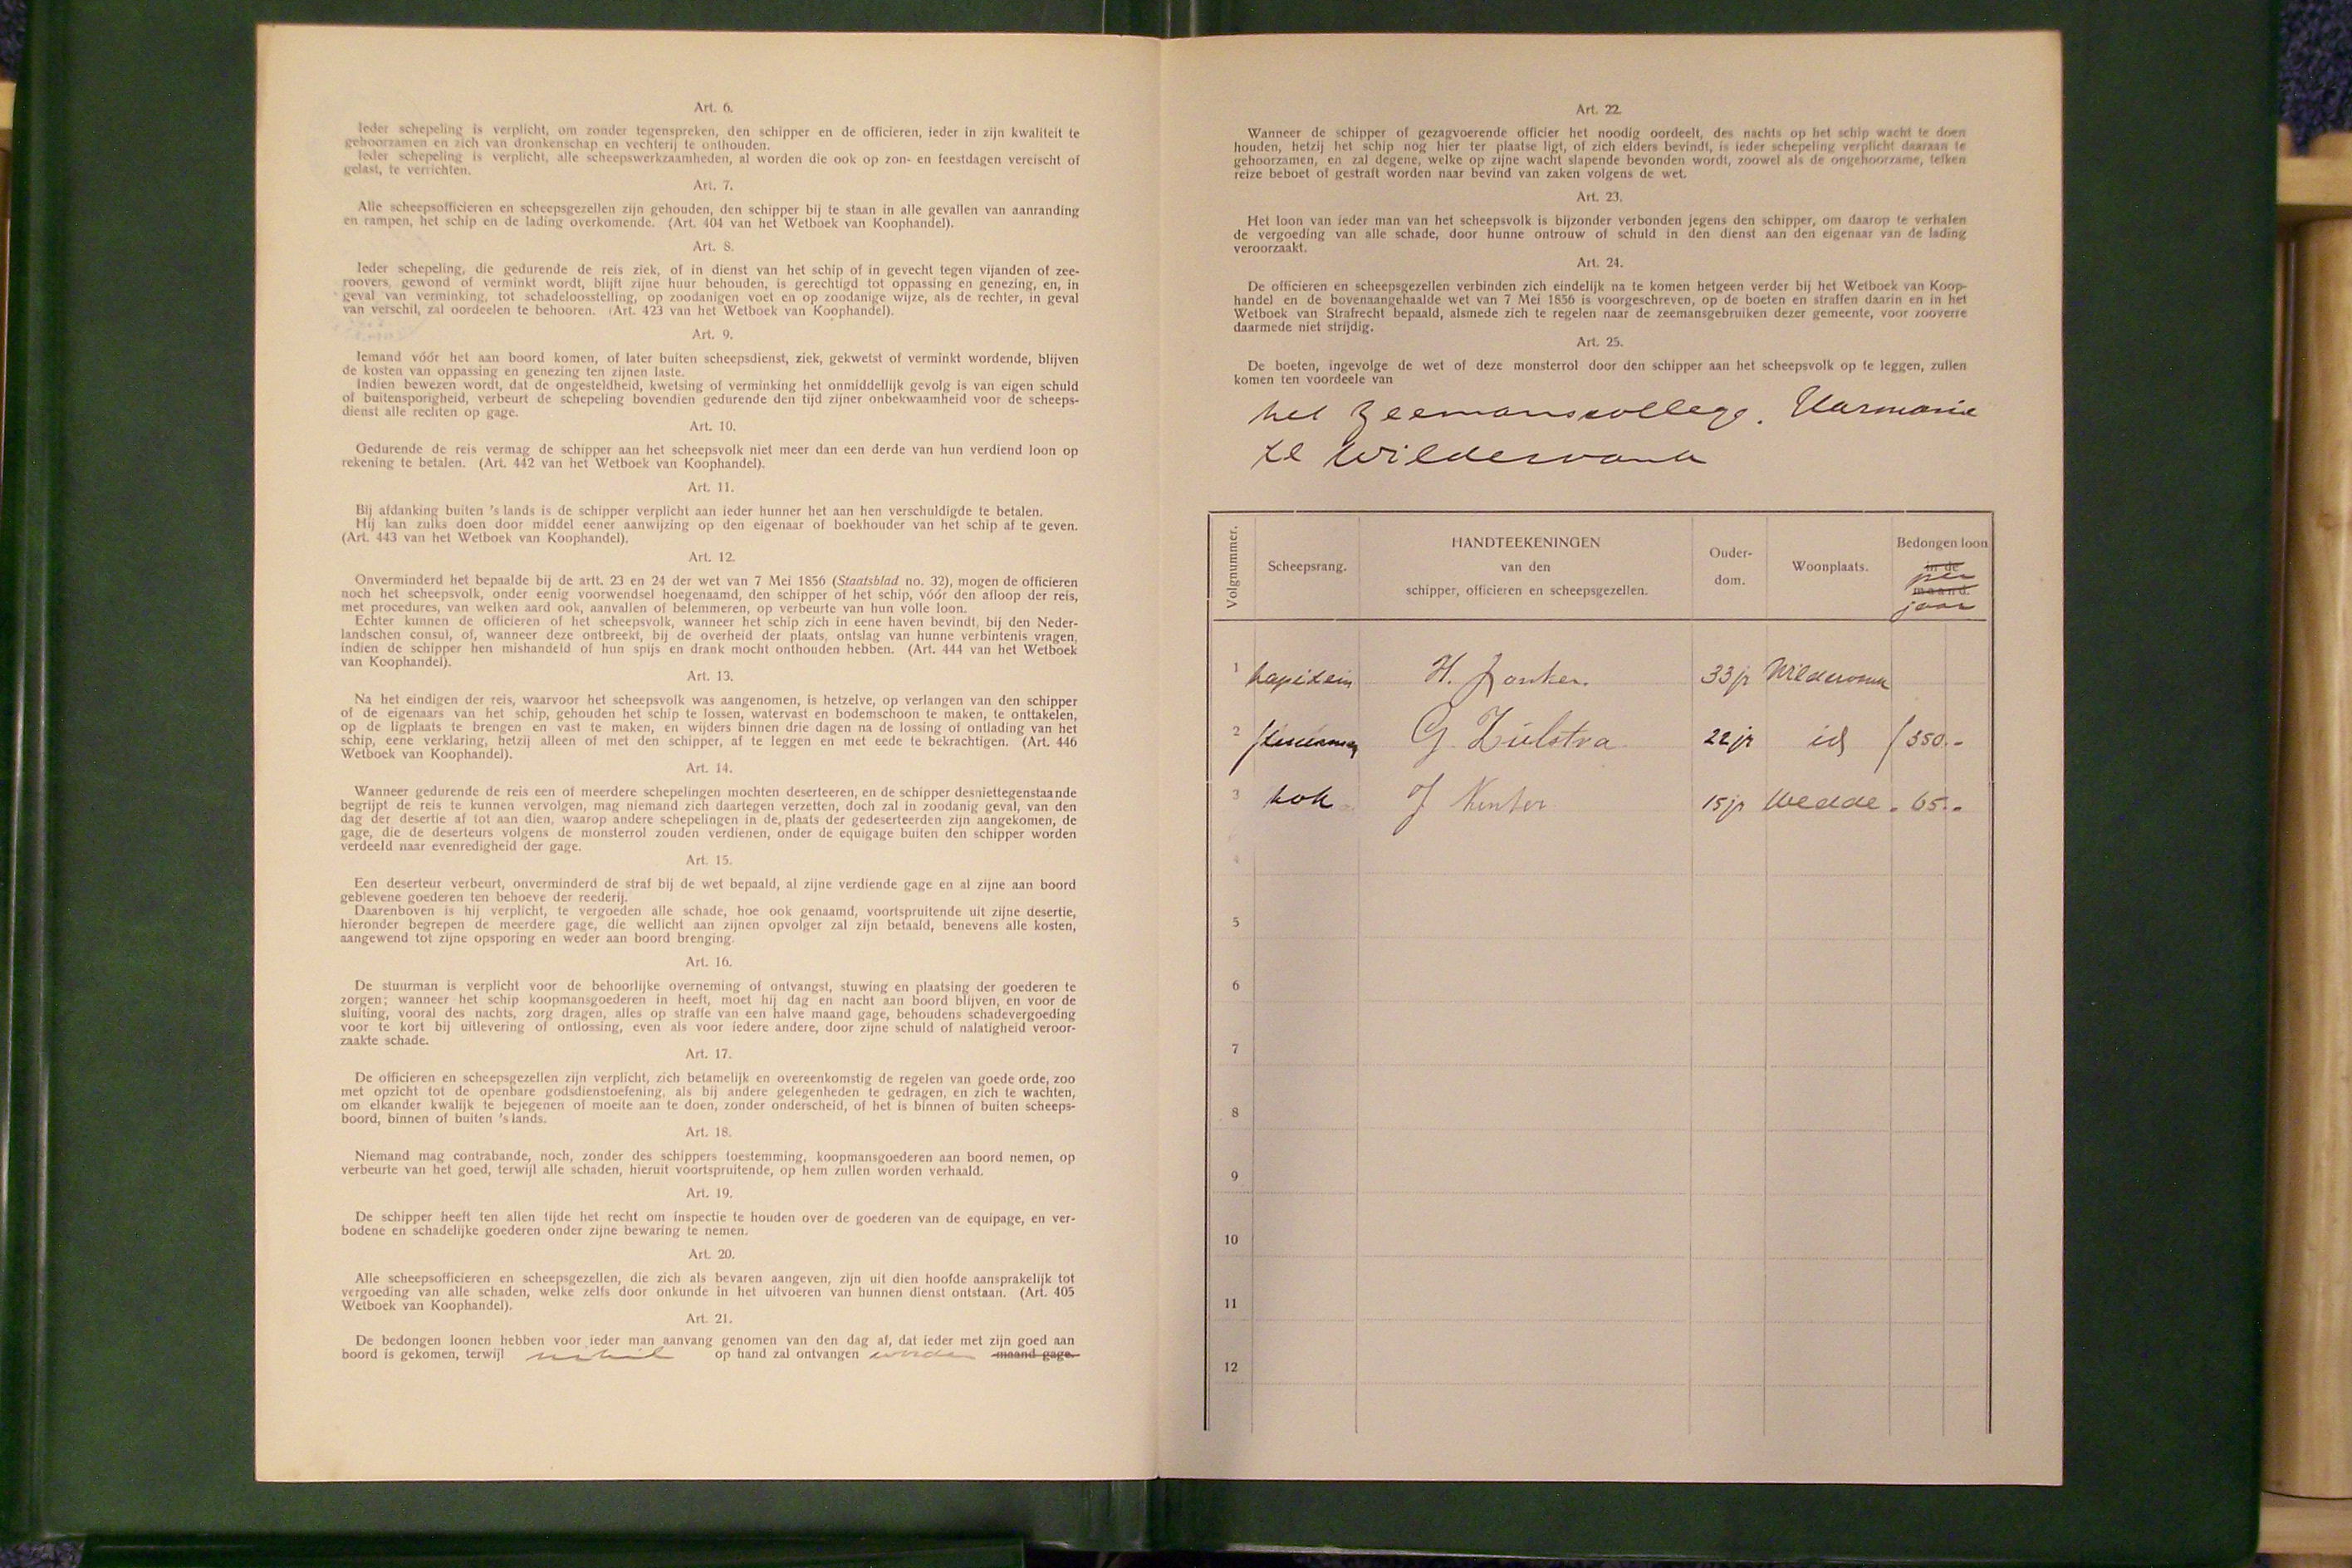 Art. 6.
Ieder schepeling is verplicht, om zonder tegenspreken, den schipper en de officieren, ieder in zijn kwaliteit te
gehoorzamen en zich van dronkenschap en vechterij te onthouden.
Ieder schepeling is verplicht, alle scheepswerkzaamheden, al worden die ook op zon- en feestdagen vereischt of
gelast, te verrichten.
Art. 7.
Alle scheepsofficieren en scheepsgezellen zijn gehouden, den schipper bij te staan in alle gevallen van aanranding
en rampen, het schip en de lading overkomende. (Art. 404 van het Wetboek van Koophandel).
Art. 8.
Ieder schepeling, die gedurende de reis ziek, of in dienst van het schip of in gevecht tegen vijanden of zee-
roovers, gewond of verminkt wordt, blijft zijne huur behouden, is gerechtigd tot oppassing en genezing, en, in
geval van verminking, tot schadeloosstelling, op zoodanigen voet en op zoodanige wijze, als de rechter, in geval
van verschil, zal oordeelen te behooren. (Art. 423 van het Wetboek van Koophandel).
Art. 9.
Iemand vóór het aan boord komen, of later buiten scheepsdienst, ziek, gekwetst of verminkt wordende, blijven
de kosten van oppassing en genezing ten zijnen laste.
Indien bewezen wordt, dat de ongesteldheid, kwetsing of verminking het onmiddellijk gevolg is van eigen schuld
of buitensporigheid, verbeurt de schepeling bovendien gedurende den tijd zijner onbekwaamheid voor de scheeps-
dienst alle rechten op gage.
Art. 10.
Gedurende de reis vermag de schipper aan het scheepsvolk niet meer dan een derde van hun verdiend loon op
rekening te betalen. (Art. 442 van het Wetboek van Koophandel).
Art. 11.
Bij afdanking buiten 's lands is de schipper verplicht aan ieder hunner het aan hen verschuldigde te betalen.
Hij kan zulks doen door middel eener aanwijzing op den eigenaar of boekhouder van het schip af te geven.
(Art. 443 van het Wetboek van Koophandel).
Art. 12.
Onverminderd het bepaalde bij de artt. 23 en 24 der wet van 7 Mei 1856 (Staatsblad no. 32), mogen de officieren
noch het scheepsvolk, onder eenig voorwendsel hoegenaamd, den schipper of het schip, vóór den afloop der reis,
met procedures, van welken aard ook, aanvallen of belemmeren, op verbeurte van hun volle loon.
Echter kunnen de officieren of het scheepsvolk, wanneer het schip zich in eene haven bevindt, bij den Neder-
landschen consul, of, wanneer deze ontbreekt, bij de overheid der plaats, ontslag van hunne verbintenis vragen,
indien de schipper hen mishandeld of hun spijs en drank mocht onthouden hebben. (Art. 444 van het Wetboek
van Koophandel).
Art. 13.
Na het eindigen der reis, waarvoor het scheepsvolk was aangenomen, is hetzelve, op verlangen van den schipper
of de eigenaars van het schip, gehouden het schip te lossen, watervast en bodemschoon te maken, te onttakelen,
op de ligplaats te brengen en vast te maken, en wijders binnen drie dagen na de lossing of ontlading van het
schip, eene verklaring, hetzij alleen of met den schipper, af te leggen en met eede te bekrachtigen. (Art. 446
Wetboek van Koophandel).
Art. 14.
Wanneer gedurende de reis een of meerdere schepelingen mochten deserteeren, en de schipper desniettegenstaande
begrijpt de reis te kunnen vervolgen, mag niemand zich daartegen verzetten, doch zal in zoodanig geval, van den
dag der desertie af tot aan dien, waarop andere schepelingen in de plaats der gedeserteerden zijn aangekomen, de
gage, die de deserteurs volgens de monsterrol zouden verdienen, onder de equigage buiten den schipper worden
verdeeld naar evenredigheid der gage.
Art. 15.
Een deserteur verbeurt, onverminderd de straf bij de wet bepaald, al zijne verdiende gage en al zijne aan boord
geblevene goederen ten behoeve der reederij.
Daarenboven is hij verplicht, te vergoeden alle schade, hoe ook genaamd, voortspruitende uit zijne desertie,
hieronder begrepen de meerdere gage, die wellicht aan zijnen opvolger zal zijn betaald, benevens alle kosten,
aangewend tot zijne opsporing en weder aan boord brenging.
Art. 16.
De stuurman is verplicht voor de behoorlijke overneming of ontvangst, stuwing en plaatsing der goederen te
zorgen; wanneer het schip koopmansgoederen in heeft, moet hij dag en nacht aan boord blijven, en voor de
sluiting, vooral des nachts, zorg dragen, alles op straffe van een halve maand gage, behoudens schadevergoeding
voor te kort bij uitlevering of ontlossing, even als voor iedere andere, door zijne schuld of nalatigheid veroor-
zaakte schade.
Art. 17.
De officieren en scheepsgezellen zijn verplicht, zich betamelijk en overeenkomstig de regelen van goede orde, zoo
met opzicht tot de openbare godsdienstoefening, als bij andere gelegenheden te gedragen, en zich te wachten,
om elkander kwalijk te bejegenen of moeite aan te doen, zonder onderscheid, of het is binnen of buiten scheeps-
boord, binnen of buiten 's lands.
Art. 18.
Niemand mag contrabande, noch, zonder des schippers toestemming, koopmansgoederen aan boord nemen, op
verbeurte van het goed, terwijl alle schaden, hieruit voortspruitende, op hem zullen worden verhaald.
Art. 19.
De schipper heeft ten allen tijde het recht om inspectie te houden over de goederen van de equipage, en ver-
bodene en schadelijke goederen onder zijne bewaring te nemen.
Art. 20.
Alle scheepsofficieren en scheepsgezellen, die zich als bevaren aangeven, zijn uit dien hoofde aansprakelijk tot
vergoeding van alle schaden, welke zelfs door onkunde in het uitvoeren van hunnen dienst ontstaan. (Art. 405
Wetboek van Koophandel).
Art. 21.
De bedongen loonen hebben voor ieder man aanvang genomen van den dag af, dat ieder met zijn goed aan
boord is gekomen, terwijl nihil op hand zal ontvangen worden maand gage.
Art. 22.
Wanneer de schipper of gezagvoerende officier het noodig oordeelt, des nachts op het schip wacht te doen
houden, hetzij het schip nog hier ter plaatse ligt, of zich elders bevindt, is ieder schepeling verplicht daaraan te
gehoorzamen, en zal degene, welke op zijne wacht slapende bevonden wordt, zoowel als de ongehoorzame, telken
reize beboet of gestraft worden naar bevind van zaken volgens de wet.
Art. 23.
Het loon van ieder man van het scheepsvolk is bijzonder verbonden jegens den schipper, om daarop te verhalen
de vergoeding van alle schade, door hunne ontrouw of schuld in den dienst aan den eigenaar van de lading
veroorzaakt.
Art. 24.
De officieren en scheepsgezellen verbinden zich eindelijk na te komen hetgeen verder bij het Wetboek van Koop-
handel en de bovenaangehaalde wet van 7 Mei 1856 is voorgeschreven, op de boeten en straffen daarin en in het
Wetboek van Strafrecht bepaald, alsmede zich te regelen naar de zeemansgebruiken dezer gemeente, voor zooverre
daarmede niet strijdig.
Art. 25.
De boeten, ingevolge de wet of deze monsterrol door den schipper aan het scheepsvolk op te leggen, zullen
komen ten voordeele van
het Zeemanscollege. Harmonie
te Wildervank
Volgnummer. Scheepsrang. HANDTEEKENINGEN van den schipper, officieren en scheepsgezellen. Ouder-dom. Woonplaats. Bedongen loon in de maand. per jaar
1 kapitein H. Jonker. 33 jr Wildervank
2 stuurman G. Zuilstra 22 jr id f 350.-
3 kok J 15 jr Wedde - 65.-
4
5
6
7
8
9
10
11
12